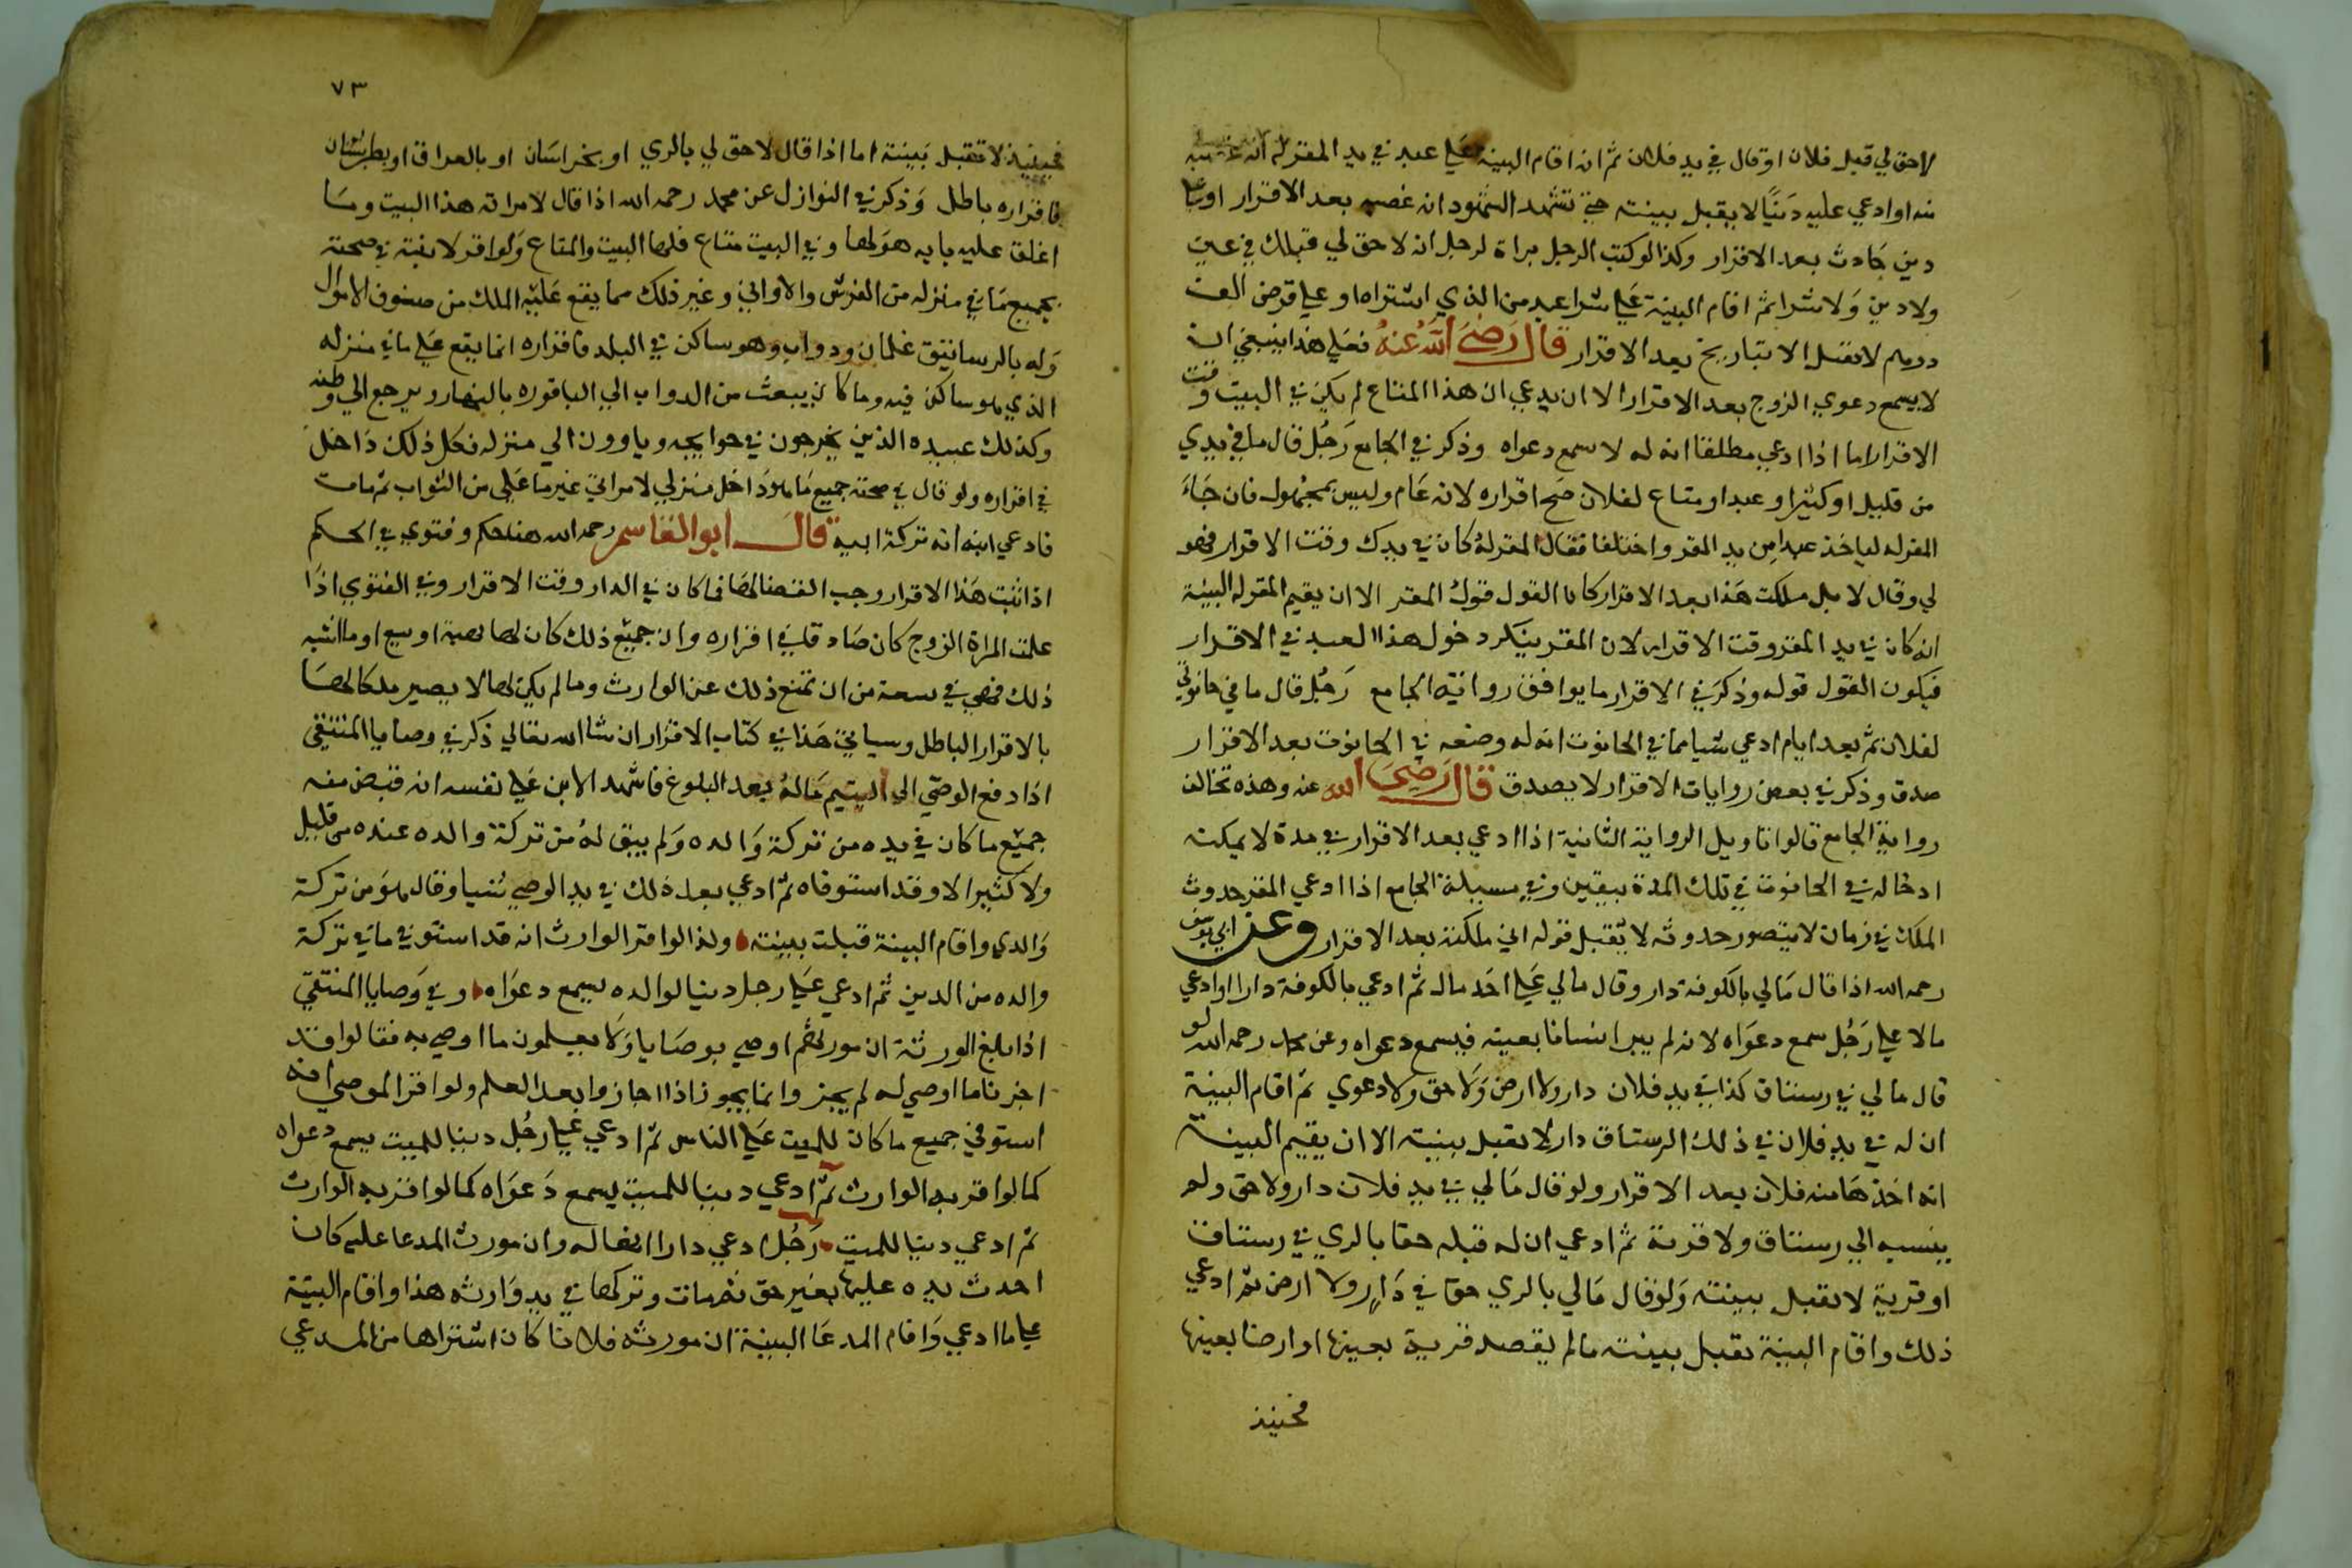 لاحق لي قبل فلان او قال في يد فلان ثم انه اقام البينة علي عبد في يد المقر له انه غصبه
منه او ادعي عليه دينًا لا يقبل بينته حتي تشهد الشهود انه غصبه بعد الاقرار او علي
دين حادث بعد الاقرار وكذا لو كتب الرجل براة لرجل ان لا حق لي قبلك في عين
ولا دين ولا شرا ثم اقام البينة علي شرا عبد من الذي اشتراه او علي قرض الف
درهم لا يقبل الا بتاريخ بعد الاقرار قال رضي الله عنه فعلي هذا ينبغي ان
لا يسمع دعوي الزوج بعد الاقرار الا ان يدعي ان هذا المتاع لم يكن في البيت وقت
الاقرار اما اذا ادعي مطلقا انه له لا سمع دعواه وذكر في الجامع رجل قال ما في يدي
من قليل او كثير او عبد او متاع لفلان صح اقراره لانه عام وليس بمجهول فان جاء
المقر له لياخذ عبدا من يد المقر واختلفا فقال المقر له كان في يدك وقت الاقرار فهو
لي وقال لا بل ملكت هذا بعد الاقرار كان القول قول المقر الا ان يقيم المقر له البينة
انه كان في يد المقر وقت الاقرار لان المقر ينكر دخول هذا العبد في الاقرار
فيكون القول قوله وذكر في الاقرار ما يوافق رواية الجامع رجل قال ما في حانوتي
لفلان ثم بعد ايام ادعي شيا مما في الحانوت انه له وضعه في الحانوت بعد الاقرار
صدق وذكر في بعض روايات الاقرار لا يصدق قال رضي الله عنه وهذه تخالف
رواية الجامع قالوا تاويل الرواية الثانية اذا ادعي بعد الاقرار في مدة لا يمكنه
ادخاله في الحانوت في تلك المدة بيقين وفي مسيلة الجامع اذا ادعي المقر حدوث
الملك في زمان لا يتصور حدوثه لا يقبل قوله اني ملكته بعد الاقرار وعن ابي يوسف
رحمه الله اذا قال مالي بالكوفة دار وقال مالي علي احد مال ثم ادعي بالكوفة دارا او ادعي
مالا علي رجل سمع دعواه لانه لم يبرا انسانا بعينه فيسمع دعواه وعن محمد رحمه الله لو
قال مالي في رستاق كذا في يد فلان دار ولا ارض ولا حق ولا دعوي ثم اقام البينة
ان له في يد فلان في ذلك الرستاق دار لا يقبل بينته الا ان يقيم البينة
انه اخذها منه فلان بعد الاقرار ولو قال مالي في يد فلان دار ولا حق ولم
ينسبه الي رستاق ولا قرية ثم ادعي ان له قبله حقا بالري في رستاق
او قرية لا يقبل بينته ولو قال مالي بالري حق في دار ولا ارض ثم ادعي
ذلك واقام البينة يقبل بينته مالم يقصد قرية بعينها او ارضا بعينها
فحينيذ
٧٣
فحينيذ لا تقبل بينته اما اذا قال لا حق لي بالري او بخراسان او بالعراق او بطبرستان
فاقراره باطل وذكر في النوازل عن محمد رحمه الله اذا قال لامراته هذا البيت وما
اغلق عليه بابه هو لها وفي البيت متاع فلها البيت والمتاع ولو اقر لابنته في صحته
بجميع ما في منزله من الفرش والاواني وغير ذلك مما يقع عليه الملك من صنوف الاموال
وله بالرساتيق غلمان ودواب وهو ساكن في البلد فاقراره انما يقع علي ما في منزله
الذي هو ساكن فيه وما كان يبعث من الدواب الي الباقورة بالنهار ويرجع الي وطنه
وكذلك عبيده الذين يخرجون في حوايجه وياوون الي منزله فكل ذلك داخل
في اقراره ولو قال في صحته جميع ما هو داخل منزلي لامراتي غير ما علي من الثواب ثم مات
فادعي ابنه انه تركة ابيه قال ابو القاسم رحمه الله هنا حكم وفتوي في الحكم
اذا ثبت هذا الاقرار وجب القضا لها فما كان في الدار وقت الاقرار وفي الفتوي اذا
علمت المراة الزوج كان صادقا في اقراره وان جميع ذلك كان لها بهبة او بيع او ما اشبه
ذلك فهي في سعة من ان تمنع ذلك عن الوارث وما لم يكن لها لا يصير ملكا لها
بالاقرار الباطل وسياتي هذا في كتاب الاقرار ان شا الله تعالي ذكر في وصايا المنتقي
اذا دفع الوصي الي اليتيم ماله بعد البلوغ فاشهد الابن علي نفسه انه قبض منه
جميع ما كان في يده من تركة والده ولم يبق له من تركة والده عنده من قليل
ولا كثير الا وقد استوفاه ثم ادعي بعد ذلك في يد الوصي شيا وقال هو من تركة
والدي واقام البينة قبلت بينته وكذا لو اقر الوارث انه قد استوفي ما في تركة
والده من الدين ثم ادعي علي رجل دينا لوالده يسمع دعواه وفي وصايا المنتقي
اذا بلغ الورثة ان مورثهم اوصي بوصايا ولا يعلمون ما اوصي به فقالوا قد
اجزنا ما اوصي له لم يجز وانما يجوز اذا اجازوا بعد العلم ولو اقر الموصي انه
استوفي جميع ما كان للميت علي الناس ثم ادعي علي رجل دينا للميت يسمع دعواه
كما لو اقر به الوارث ثم ادعي دينا للميت يسمع دعواه كما لو اقر به الوارث
ثم ادعي دينا للميت رجل ادعي دارا انها له وان مورث المدعا عليه كان
احدث يده عليها بغير حق ثم مات وتركها في يد وارثه هذا واقام البينة
علي ما ادعي واقام المدعا البينة ان مورثه فلانا كان اشتراها من المدعي